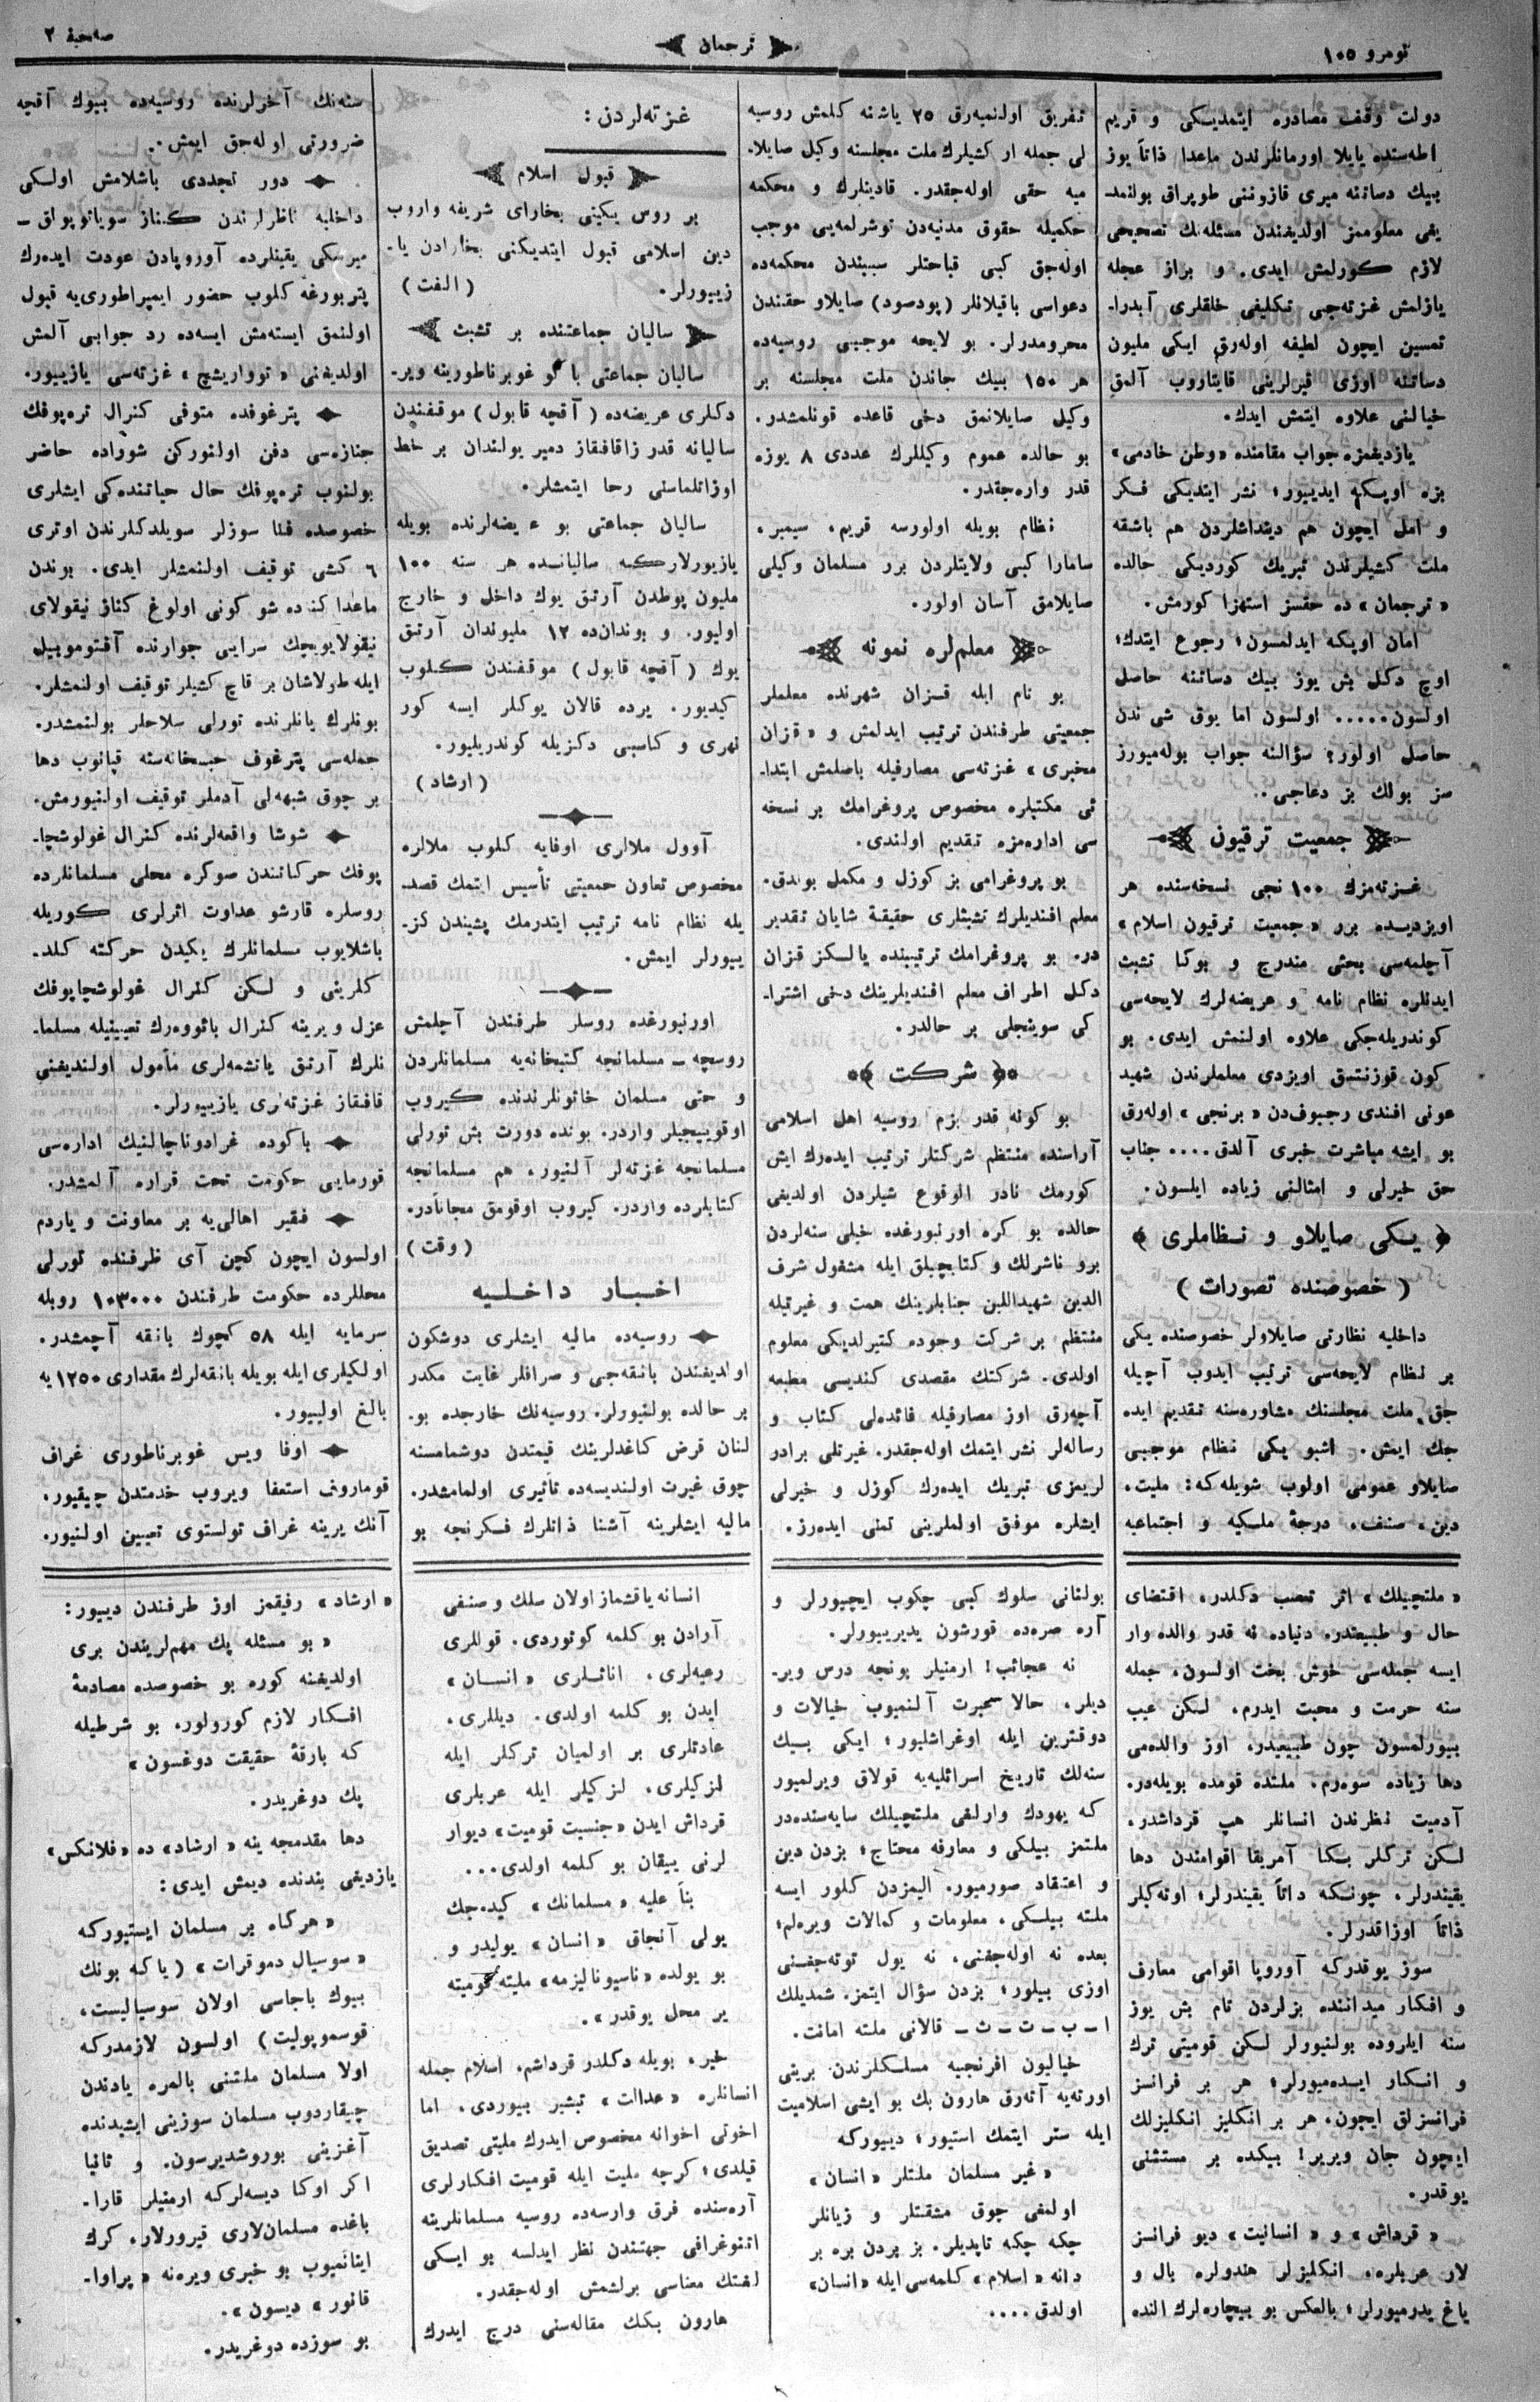 نومرو ١٠٥
ترجمان
صحیفهٔ ٢
دولت وقف مصادره ایتمدیكی و قریم
اطه‌سنده یایلا اورمانلرندن ماعدا ذاتاً یوز
بیك دساتنه میری قازوننی طوپراق بولنمد-
یغی معلوممز اولدیغندن مسئله‌نك تصحیحی
لازم كورلمش ایدی. و براز عجله
یازلمش غزته‌جی تكلیفی خلقلری آیدرا-
تمسین ایچون لطیفه اوله‌رق ایكی ملیون
دساتنه اوزی قیرلرینی قایتاروب آلمق
خیالنی علاوه ایتمش ایدك.
یازدیغمزه جواب مقامنده «وطن خادمی»
بزه اوپكه ایدییور؛ نشر ایتدیكی فكر
و امل ایچون هم دینداشلردن هم باشقه
ملت كشیلرندن تبریك كوردیكی حالده
«ترجمان» ده حقسز استهزا كورمش.
امان اوپكه ایدلمسون؛ رجوع ایتدك؛
اوچ دكل بش یوز بیك دساتنه حاصل
اولسون..... اولسون اما یوق شی ندن
حاصل اولور؟ سؤالنه جواب بوله‌میورز
سز بولك بز دعاجی..
جمعیت ترقیون
غزته‌مزك ١٠٠ نجی نسخه‌سنده هر
اویزدیده برر «جمعیت ترقیون اسلام»
آچلمه‌سی بحثی مندرج و بوكا تشبث
ایدنلره نظام نامه و عریضه‌لرك لایحه‌سی
كوندریله‌جكی علاوه اولنمش ایدی. بو
كون قوزنتسق اویزدی معلملرندن شهید
عونی افندی رجبوف‌دن «برنجی» اوله‌رق
بو ایشه مباشرت خبری آلدق.... جناب
حق خیرلی و امثالنی زیاده ایلسون.
یكی صایلاو و نظاملری
(خصوصنده تصورات)
داخلیه نظارتی صایلاولر خصوصنده یكی
بر نظام لایحه‌سی ترتیب ایدوب آچیله
جق ملت مجلسنك مشاوره‌سنه تقدیم ایده
جك ایمش. اشبو یكی نظام موجبی
صایلاو عمومی اولوب شویله‌كه: ملیت،
دین، صنف، درجهٔ ملكیه و اجتماعیه
تفریق اولنمیه‌رق ٢٥ یاشنه كلمش روسیه
لی جمله ار كشیلرك ملت مجلسنه وكیل صایلا-
میه حقی اوله‌جقدر. قادینلرك و محكمه
حكمیله حقوق مدنیه‌دن توشرلمه‌یی موجب
اوله‌جق كبی قباحتلر سببندن محكمه‌ده
دعواسی باقیلانلر (پودصود) صایلاو حقندن
محرومدرلر. بو لایحه موجبی روسیه‌ده
هر ١٥٠ بیك جاندن ملت مجلسنه بر
وكیل صایلانمق دخی قاعده قونلمشدر.
بو حالده عموم وكیللرك عددی ٨ یوزه
قدر واره‌جقدر.
نظام بویله اولورسه قریم، سیمبر،
سامارا كبی ولایتلردن برر مسلمان وكیلی
صایلامق آسان اولور.
معلم‌لره نمونه
بو نام ایله قزان شهرنده معلملر
جمعیتی طرفندن ترتیب ایدلمش و «قزان
مخبری» غزته‌سی مصارفیله باصلمش ابتدا-
ئی مكتبلره مخصوص پروغرامك بر نسخه
سی اداره‌مزه تقدیم اولندی.
بو پروغرامی بز كوزل و مكمل بولدق.
معلم افندیلرك تشبثلری حقیقة شایان تقدیر
در. بو پروغرامك ترتیبنده یالكز قزان
دكل اطراف معلم افندیلرینك دخی اشترا-
كی سوینجلی بر حالدر.
شركت
بو كونه قدر بزم روسیه اهل اسلامی
آراسنده منتظم شركتلر ترتیب ایده‌رك ایش
كورمك نادر الوقوع شیلردن اولدیغی
حالده بو كره اورنبورغده خیلی سنه‌لردن
برو ناشرلك و كتابچیلق ایله مشغول شرف
الدین شهیداللین جنابلرینك همت و غیرتیله
منتظم بر شركت وجوده كتیرلدیكی معلوم
اولدی. شركتك مقصدی كندیسی مطبعه
آچه‌رق اوز مصارفیله فائده‌لی كتاب و
رساله‌لر نشر ایتمك اوله‌جقدر. غیرتلی برادر
لریمزی تبریك ایده‌رك كوزل و خیرلی
ایشلره موفق اولملرینی تمنی ایده‌رز.
غزته‌لردن:
قبول اسلام
بر روس یكیتی بخارای شریفه واروب
دین اسلامی قبول ایتدیكنی بخارادن یا-
زییورلر. (الفت)
سالیان جماعتنده بر تشبث
سالیان جماعتی باكو غوبرناطورینه ویر-
دكلری عریضه‌ده (آقچه قابول) موقفندن
سالیانه قدر زاقافقاز دمیر یولندان بر خط
اوزاتلماسنی رجا ایتمشلر.
سالیان جماعتی بو عریضه‌لرنده بویله
یازیورلاركه سالیانده هر سنه ١٠٠
ملیون پوطدن آرتق یوك داخل و خارج
اولیور. و بوندان‌ده ١٢ ملیوندان آرتق
یوك (آقچه قابول) موقفندن كلوب
كیدیور. یرده قالان یوكلر ایسه كور
نهری و كاسپی دكزیله كوندریلیور.
(ارشاد)
آوول ملالری اوفایه كلوب ملالره
مخصوص تعاون جمعیتی تأسیس ایتمك قصد-
یله نظام نامه ترتیب ایتدرمك پشیندن كز-
ییورلر ایمش.
اورنبورغده روسلر طرفندن آچلمش
روسچه - مسلمانجه كتبخانه‌یه مسلمانلردن
و حتی مسلمان خاتونلرندنده كیروب
اوقوییجیلر واردر. بونده دورت بش تورلی
مسلمانجه غزته‌لر آلنیور، هم مسلمانجه
كتابلرده واردر. كیروب اوقومق مجاناًدر.
(وقت)
اخبار داخلیه
روسیه‌ده مالیه ایشلری دوشكون
اولدیغندن بانقه‌جی و صرافلر غایت مكدر
بر حالده بولنیورلر. روسیه‌نك خارجده بو-
لنان قرض كاغدلرینك قیمتدن دوشمامسنه
چوق غیرت اولندیسه‌ده تأثیری اولمامشدر.
مالیه ایشلرینه آشنا ذاتلرك فكرنجه بو
سنه‌نك آخرلرنده روسیه‌ده بیوك آقچه
ضرورتی اوله‌جق ایمش..
دور تجددی باشلامش اولكی
داخلیه ناظرلرندن كناز سویاتوپولق -
میرسكی یقینلرده آوروپادن عودت ایده‌رك
پتربورغه كلوب حضور ایمپراطوری‌یه قبول
اولنمق ایسته‌مش ایسه‌ده رد جوابی آلمش
اولدیغنی «توواریشچ» غزته‌سی یازییور.
پترغوفده متوفی كنرال تره‌پوفك
جنازه‌سی دفن اولنوركن شوراده حاضر
بولنوب تره‌پوفك حال حیاتنده‌كی ایشلری
خصوصده فنا سوزلر سویلدكلرندن اوتری
٦ كشی توقیف اولنمشلر ایدی. بوندن
ماعدا كنده شو كونی اولوغ كناز نیقولای
نیقولایویچك سرایی جوارنده آفتوموبیل
ایله طولاشان بر قاچ كشیلر توقیف اولنمشلر.
بونلرك یانلرنده تورلی سلاحلر بولنمشدر.
جمله‌سی پترغوف حبسخانه‌سنه قپانوب دها
بر چوق شبهه‌لی آدملر توقیف اولنیورمش.
شوشا واقعه‌لرنده كنرال غولوشچا-
پوفك حركاتندن صوكره محلی مسلمانلرده
روسلره قارشو عداوت اثرلری كوریله
باشلایوب مسلمانلرك یكیدن حركته كلد-
كلرینی و لكن كنرال غولوشچاپوفك
عزل و یرینه كنرال باتووه‌رك تعیینیله مسلما-
نلرك آرتق یاتشمه‌لری مأمول اولندیغنی
قافقاز غزته‌لری یازییورلر.
باكوده غرادوناچالنیك اداره‌سی
قورمایی حكومت تحت قراره آلمشدر.
فقیر اهالی‌یه بر معاونت و یاردم
اولسون ایچون كچن آی ظرفنده تورلی
محللرده حكومت طرفندن ١٠٣٠٠٠ روبله
سرمایه ایله ٥٨ كچوك بانقه آچمشدر.
اولكیلری ایله بویله بانقه‌لرك مقداری ١٢٥٠ یه
بالغ اولییور.
اوفا ویس غوبرناطوری غراف
قوماروف استعفا ویروب خدمتدن چیقیور.
آنك یرینه غراف تولستوی تعیین اولنیور.
«ملتچیلك» اثر تعصب دكلدر، اقتضای
حال و طبیعتدر. دنیاده نه قدر والده وار
ایسه جمله‌سی خوش بخت اولسون، جمله
سنه حرمت و محبت ایدرم. لكن عیب
بیورلمسون چون طبیعیدر، اوز والده‌می
دها زیاده سوه‌رم. ملتده قومده بویله‌در.
آدمیت نظرندن انسانلر هپ قرداشدر،
لكن تركلر بكا آمریقا اقوامندن دها
یقیندرلر، چونكه ذاتاً یقیندرلر؛ اوته‌كیلر
ذاتاً اوزاقدرلر.
سوز یوقدركه آوروپا اقوامی معارف
و افكار میداننده بزلردن تام بش یوز
سنه ایلروده بولنیورلر لكن قومیتی ترك
و انكار ایده‌میورلر؛ هر بر فرانسز
فرانسزلق ایچون، هر بر انكلیز انكلیزلك
ایچون جان ویریر! بیكده بر مستثنی
یوقدر.
«قرداش» و «انسانیت» دیو فرانسز
لار عربلره، انكلیزلر هندولره بال و
یاغ یدرمیورلر؛ بالعكس بو بیچاره‌لرك النده
بولنانی سلوك كبی چكوب ایچیورلر و
آره صره‌ده قورشون یدیرییورلر.
نه عجائب! ارمنیلر بونجه درس ویر-
دیلر، حالا عبرت آلنمیوب خیالات و
دوقترین ایله اوغراشلیور؛ ایكی بیك
سنه‌لك تاریخ اسرائلیه‌یه قولاق ویرلمیور
كه یهودك وارلغی ملتچیلك سایه‌سنده‌در
ملتمز بیلكی و معارفه محتاج؛ بزدن دین
و اعتقاد صورمیور. الیمزدن كلور ایسه
ملته بیلكی، معلومات و كمالات ویره‌لم؛
بعده نه اوله‌جغنی، نه یول توته‌جغنی
اوزی بیلور؛ بزدن سؤال ایتمز. شمدیلك
ا - ب - ت - ث - قالانی ملته امانت.
خیالیون افرنجیه مسلكلرندن برینی
اورته‌یه آته‌رق هارون بك بو ایشی اسلامیت
ایله ستر ایتمك استیور؛ دییوركه
«غیر مسلمان ملتلر «انسان»
اولمغی چوق مشقتلر و زیانلر
چكه چكه تاپدیلر. بز بردن بره بر
دانه «اسلام» كلمه‌سی ایله «انسان»
اولدق....
انسانه یاقشماز اولان سلك و صنفی
آرادن بو كلمه كوتوردی. قوللری
رعیه‌لری، اناثلری «انسان»
ایدن بو كلمه اولدی. دیللری،
عادتلری بر اولمیان تركلر ایله
لزكیلری، لزكیلر ایله عربلری
قرداش ایدن «جنسیت قومیت» دیوار
لرنی ییقان بو كلمه اولدی...
بناً علیه «مسلمانك» كیده‌جك
یولی آنجاق «انسان» یولیدر و
بو یولده «ناسیونالیزمه» ملیته قومیته
یر محل یوقدر».
خیر، بویله دكلدر قرداشم، اسلام جمله
انسانلره «عدالت» تبشیر بیوردی، اما
اخوتی اخوانه مخصوص ایدرك ملیتی تصدیق
قیلدی؛ كرچه ملیت ایله قومیت افكارلری
آره‌سنده فرق وارسه‌ده روسیه مسلمانلرینه
اتنوغرافی جهتندن نظر ایدلسه بو ایكی
لغتك معناسی برلشمش اوله‌جقدر.
هارون بكك مقاله‌سنی درج ایدرك
«ارشاد» رفیقمز اوز طرفندن دییور:
«بو مسئله پك مهم‌لریندن بری
اولدیغنه كوره بو خصوصده مصادمهٔ
افكار لازم كورولور، بو شرطیله
كه بارقهٔ حقیقت دوغسون»
پك دوغریدر.
دها مقدمجه ینه «ارشاد» ده «فلانكس»
یازدیغی بندنده دیمش ایدی:
«هركاه بر مسلمان ایستیوركه
«سوسیال دموقرات» (یا كه بونك
بیوك باجاسی اولان سوسیالیست،
قوسموپولیت) اولسون لازمدركه
اولا مسلمان ملتنی بالمره یادندن
چیقاردوب مسلمان سوزینی ایشیدنده
آغزینی بوروشدیرسون. و ثانیا
اكر اوكا دیسه‌لركه ارمنیلر قارا-
باغده مسلمان‌لاری قیرورلار، كرك
اینانمیوب بو خبری ویره‌نه «پراوا-
قاتور» دیسون».
بو سوزده دوغریدر.